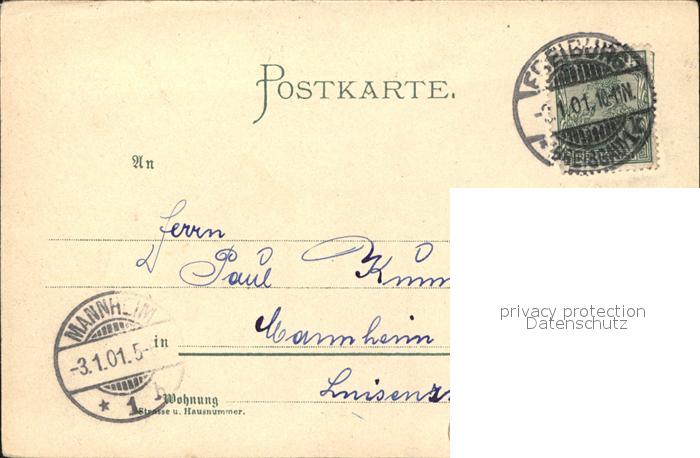 POSTKARTE.
FREIBURG
3.1.01.10-11N.
(BREISGAU) 1
An
Herrn
Paul Kümm
privacy protection
Datenschutz
MANNHEIM
-3.1.01.5-
* 1 b
in Mannheim
Wohnung Luisen
Strasse u. Hausnummer.